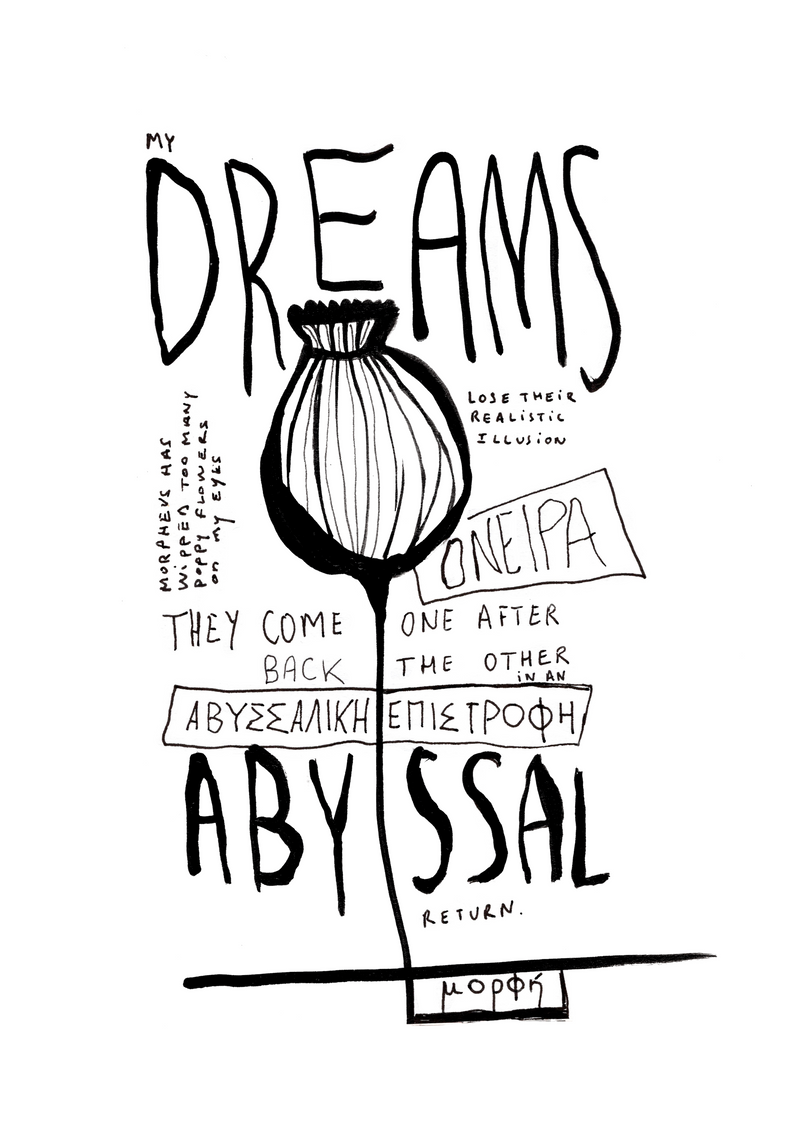 MY
DREAMS
LOSE THEIR
REALISTIC
ILLUSION
MORPHEUS HAS
WIPPED TOO MANY
POPPY FLOWERS
ON MY EYES
ΟΝΕΙΡΑ
THEY COME ONE AFTER
BACK THE OTHER
IN AN
ΑΒΥΣΣΑΛΙΚΗ ΕΠΙΣΤΡΟΦΗ
ABYSSAL
RETURN.
μορφή